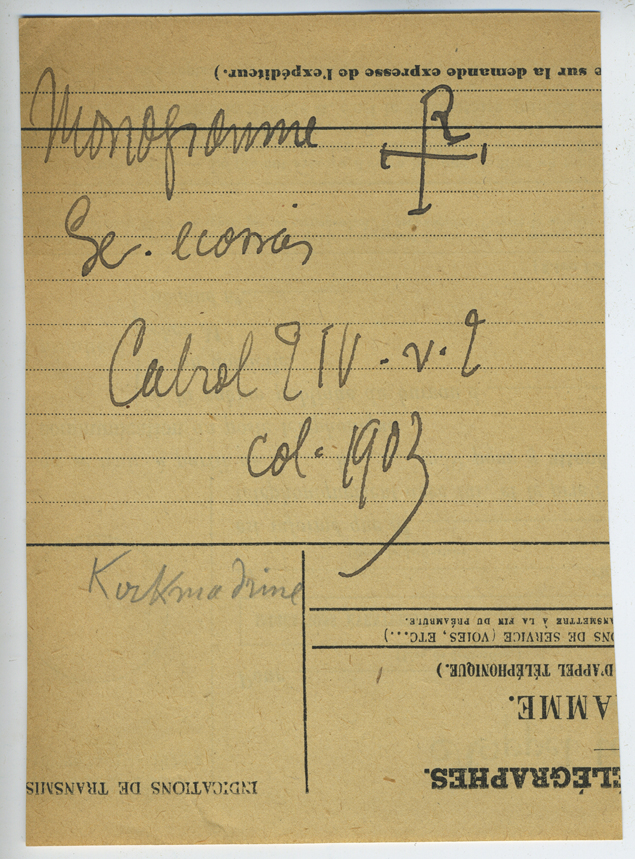 e sur la demande expresse de l'expéditeur.)
Monogramme
Cabrol T IV. v. 2
col. 1903
Kirkmadrine
ANSMETTRE À LA FIN DU PRÉAMBULE.
ONS DE SERVICE (VOIES, ETC...)
D'APPEL TÉLÉPHONIQUE.)
AMME.
ÉLÉGRAPHES.
INDICATIONS DE TRANSMIS